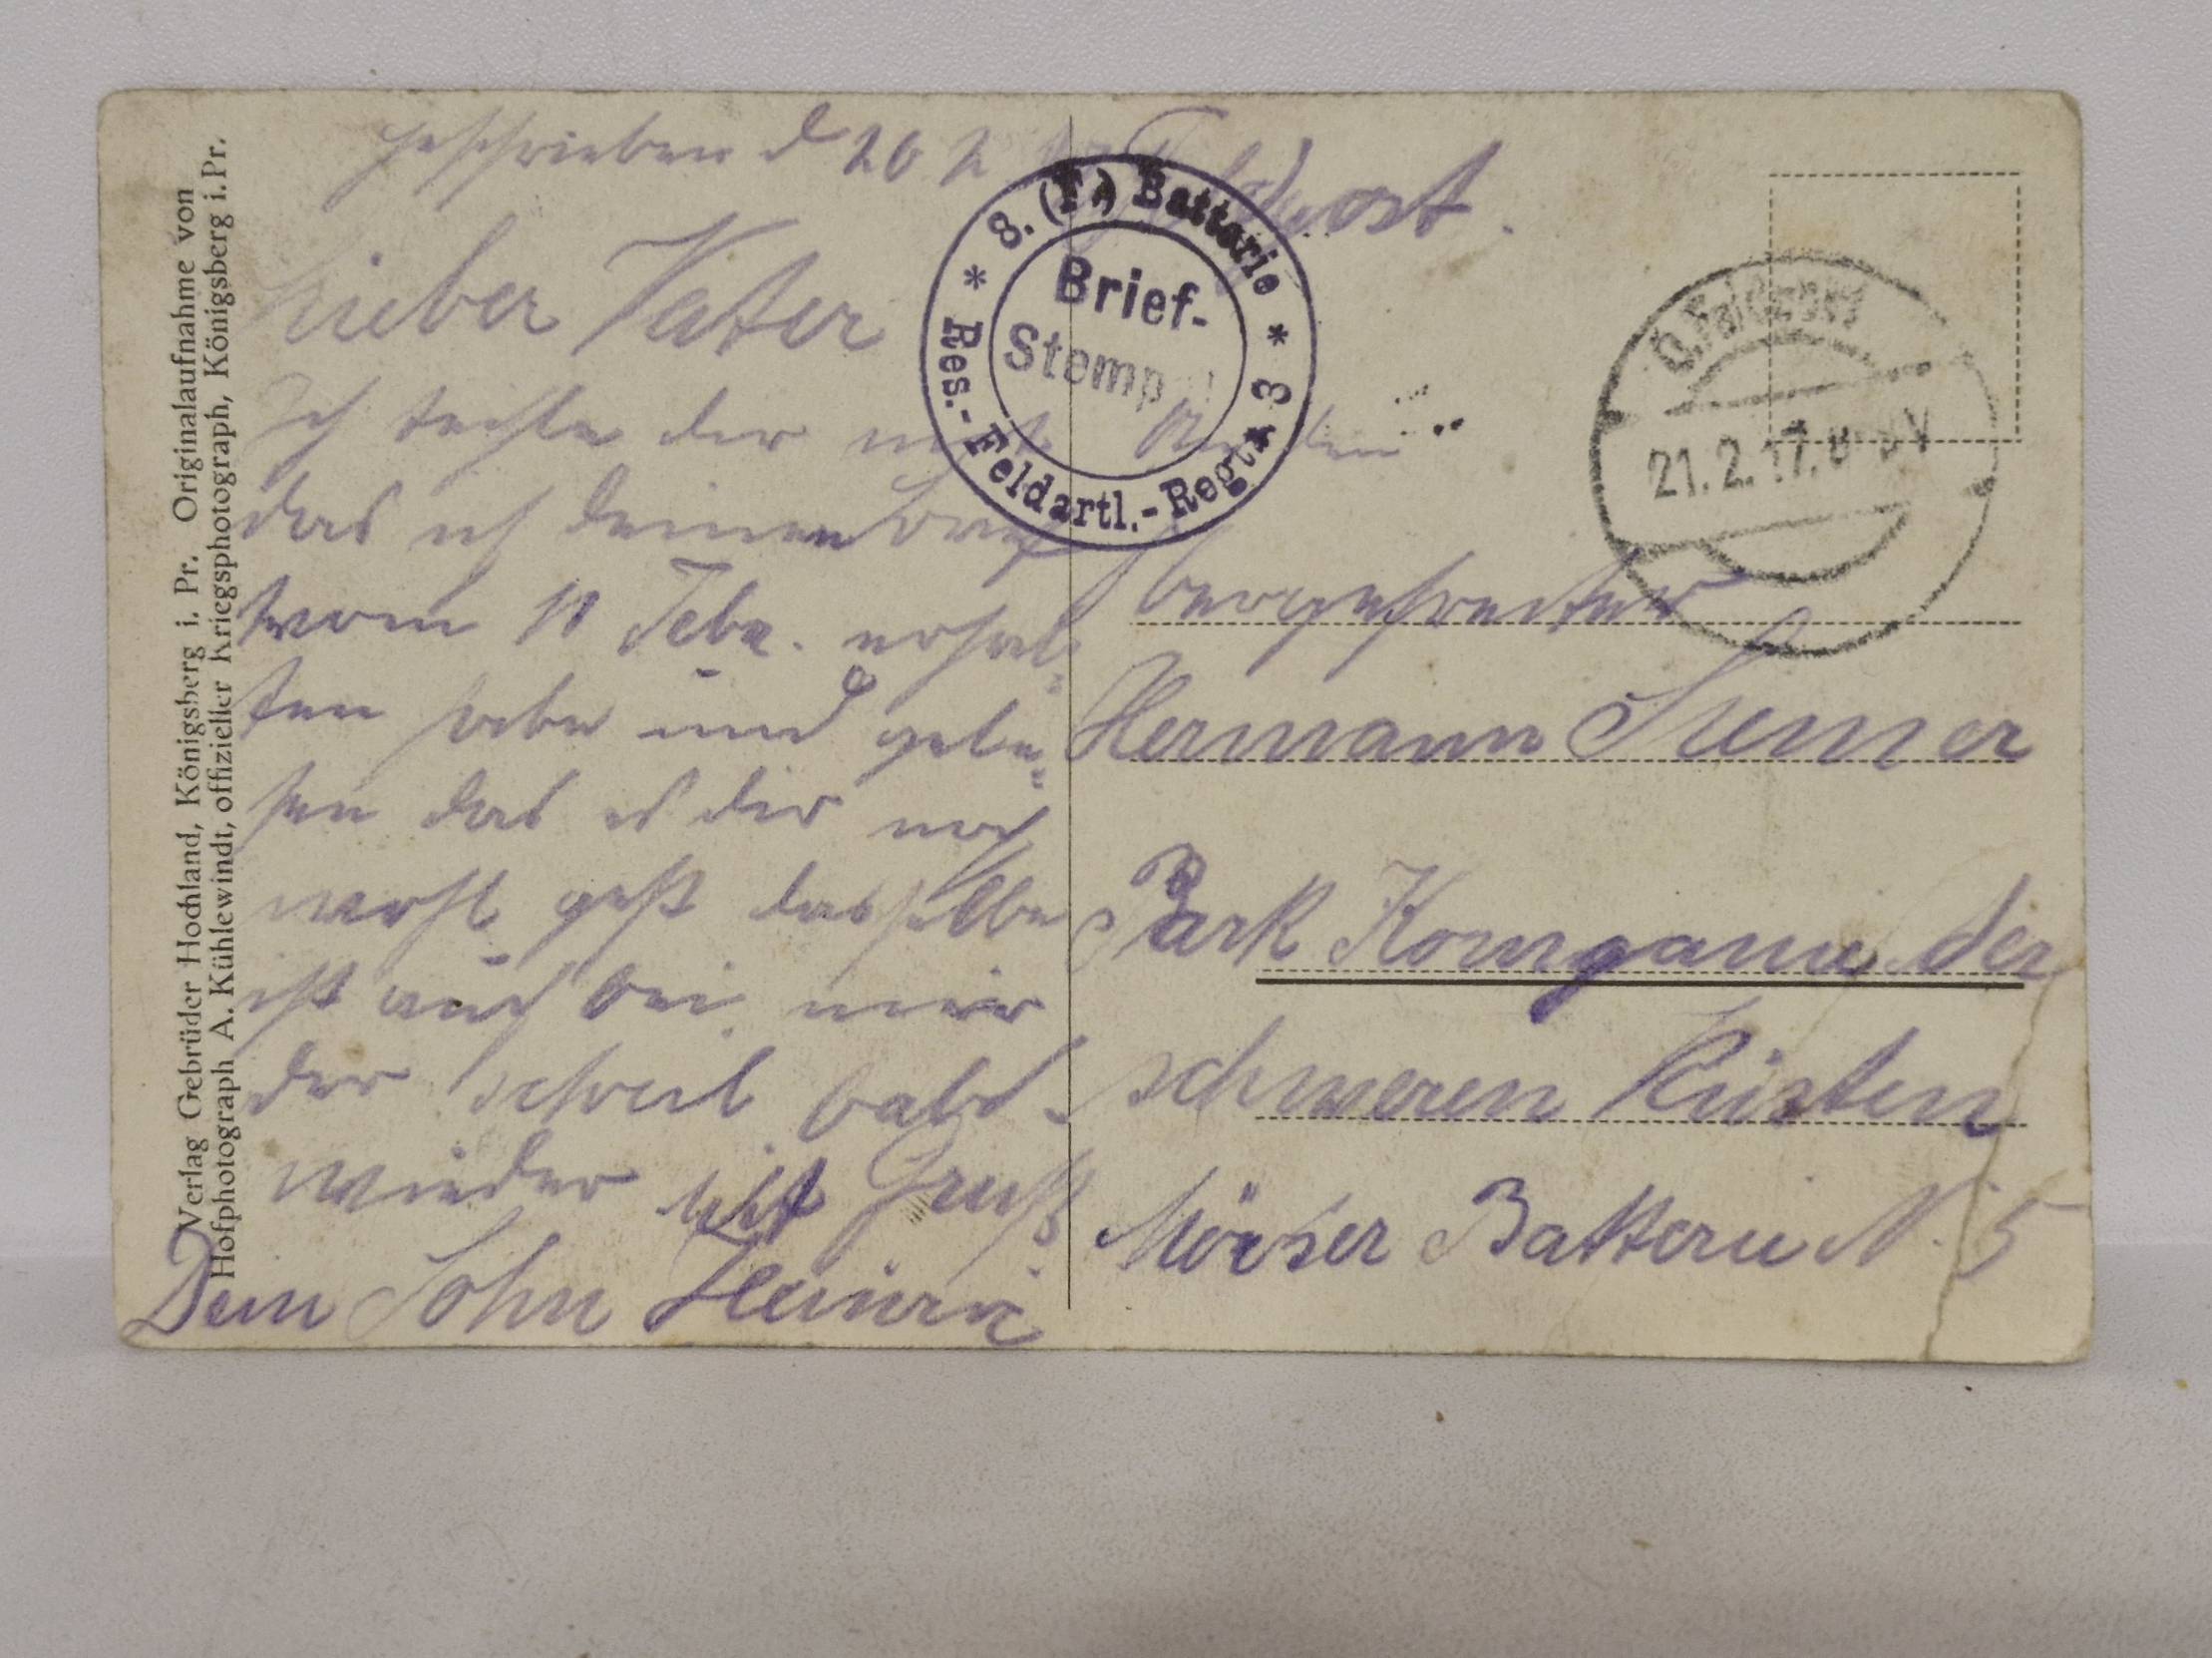 Verlag Gebrüder Hochland, Königsberg i. Pr. Originalaufnahme von
Hofphotograph A. Kühlewindt, offizieller Kriegsphotograph, Königsberg i. Pr.
geschrieben d 20 2
Lieber Vater
Ich teihle dir mit
das ich deinen Brief
vom 11 Febr. erhal-
ten habe und gele-
sen das es dir noch
wohl geht dasselbe
ist auch bei mir
der schreib bald
wieder mit Gruß
Dein Sohn Heinrich
Feldpost.
8. (F.) Battarie
Brief-
Stempel
Res.-Feldartl.-Regt. 3
21.2.17.
Obergefreiter
Hermann
Park Kompanie der
schweren Küsten
Mörser Batterie N. 5